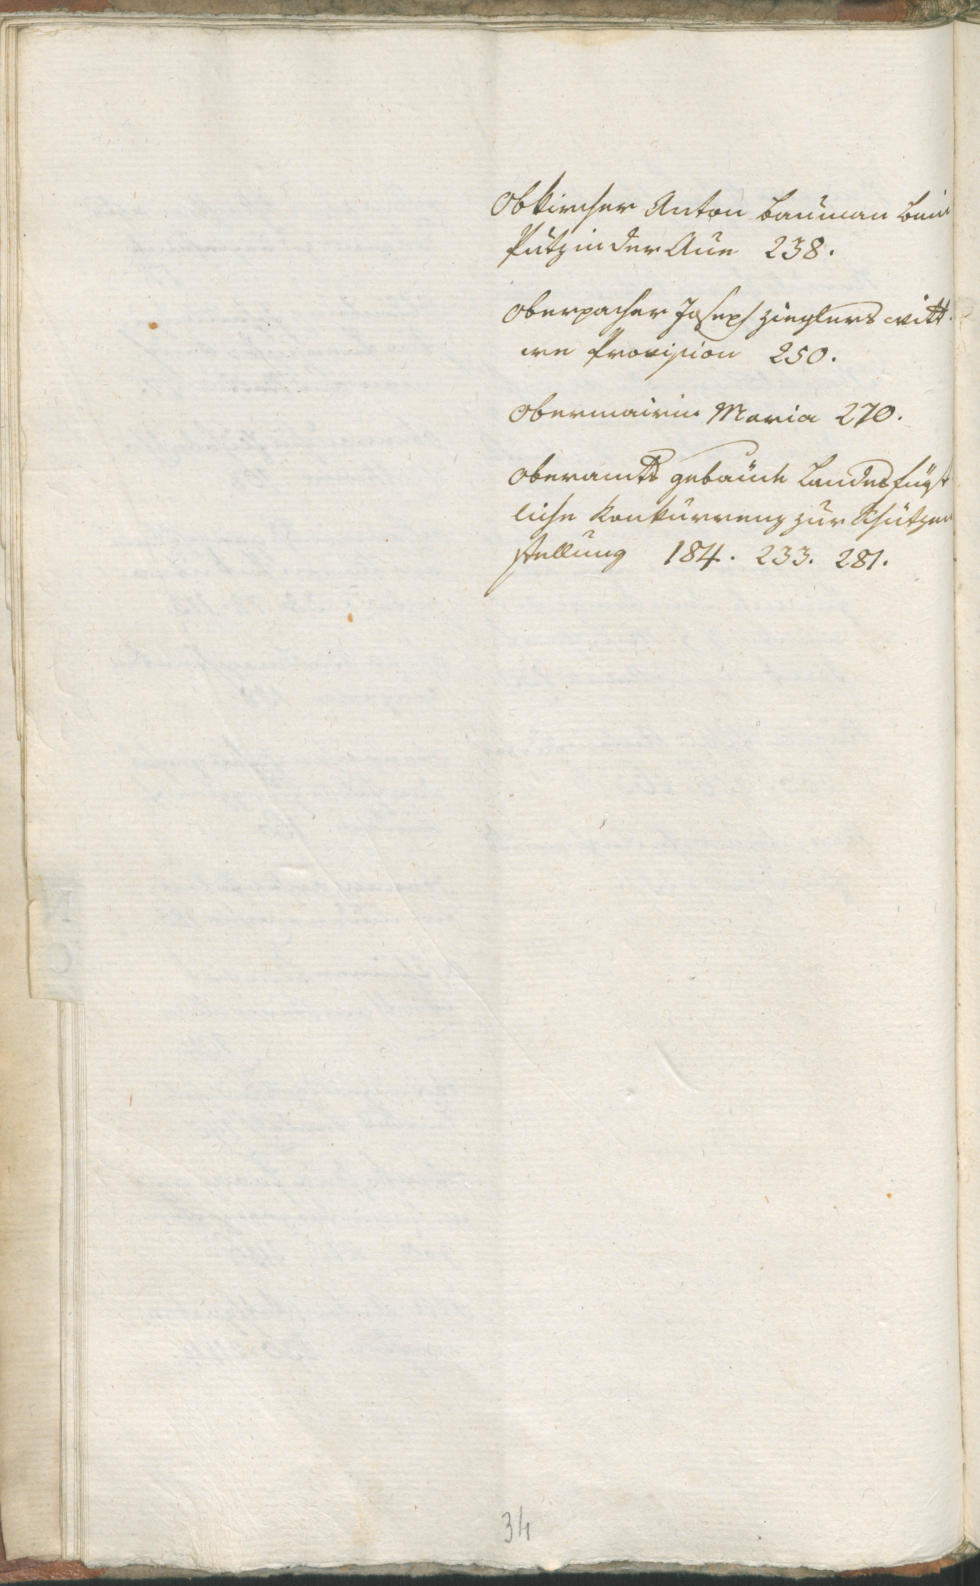 Obkircher Anton Bauman beim
Putz in der Aue 238.
Oberpacher Joseph Zieglers witt
we Provision 250.
Obermairin Maria 270.
Oberamts gebäude Landesfürst
liche Konkurrenz zur Schützen
stellung 184. 233. 281.
34